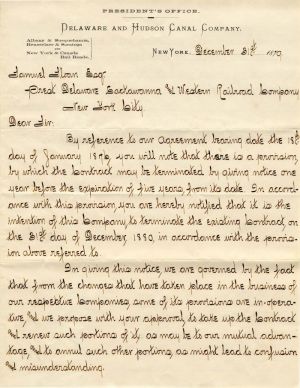 PRESIDENT'S OFFICE.
DELAWARE AND HUDSON CANAL COMPANY.
Albany & Susquehanna,
Rensselaer & Saratoga
New York & Canada
Rail Roads.
NEW YORK, December 31st 1879
Samuel Sloan Esq.
Prest Delaware Lackawanna & Western Railroad Company
New York City.
Dear Sir:
By reference to our agreement bearing date the 18th
day of January 1876, you will note that there is a provision,
by which the Contract may be terminated by giving notice one
year before the expiration of five years, from its date. In accord-
ance with this provision, you are hereby notified that it is the
intention of this Company to terminate the existing Contract, on
the 31st day of December, 1880, in accordance with the provis-
ion above referred to.
In giving this notice, we are governed by the fact
that from the changes that have taken place in the business of
our respective Companies, some of its provisions are in-opera-
tive, & we propose with your approval, to take up the Contract
& renew such portions of it, as may be to our mutual advan-
tage, & to annul such other portions, as might lead to confusion
& misunderstanding.